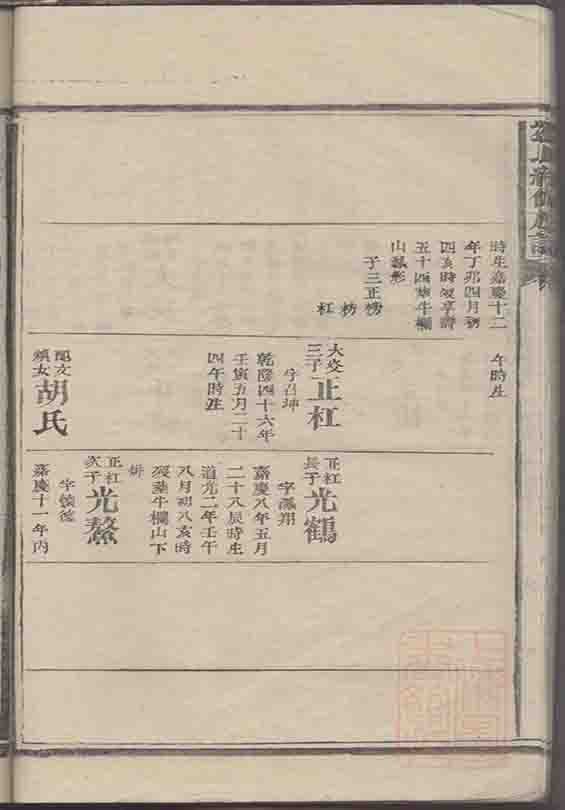 時生嘉慶十二
年丁卯四月初
四亥時歿享壽
五十四葬牛欄
山瓢形
子三正
枋
杠
午時生
大
三子正杠
字召坤
乾隆四十六年
壬寅五月二十
四午時生
配文
女胡氏
正杠
長子光鶴
字鳳翔
嘉慶八年五月
二十八辰時生
道光二年壬午
八月初八亥時
歿葬牛欄山下
排
正杠
次子光鰲
字
嘉慶十一年丙